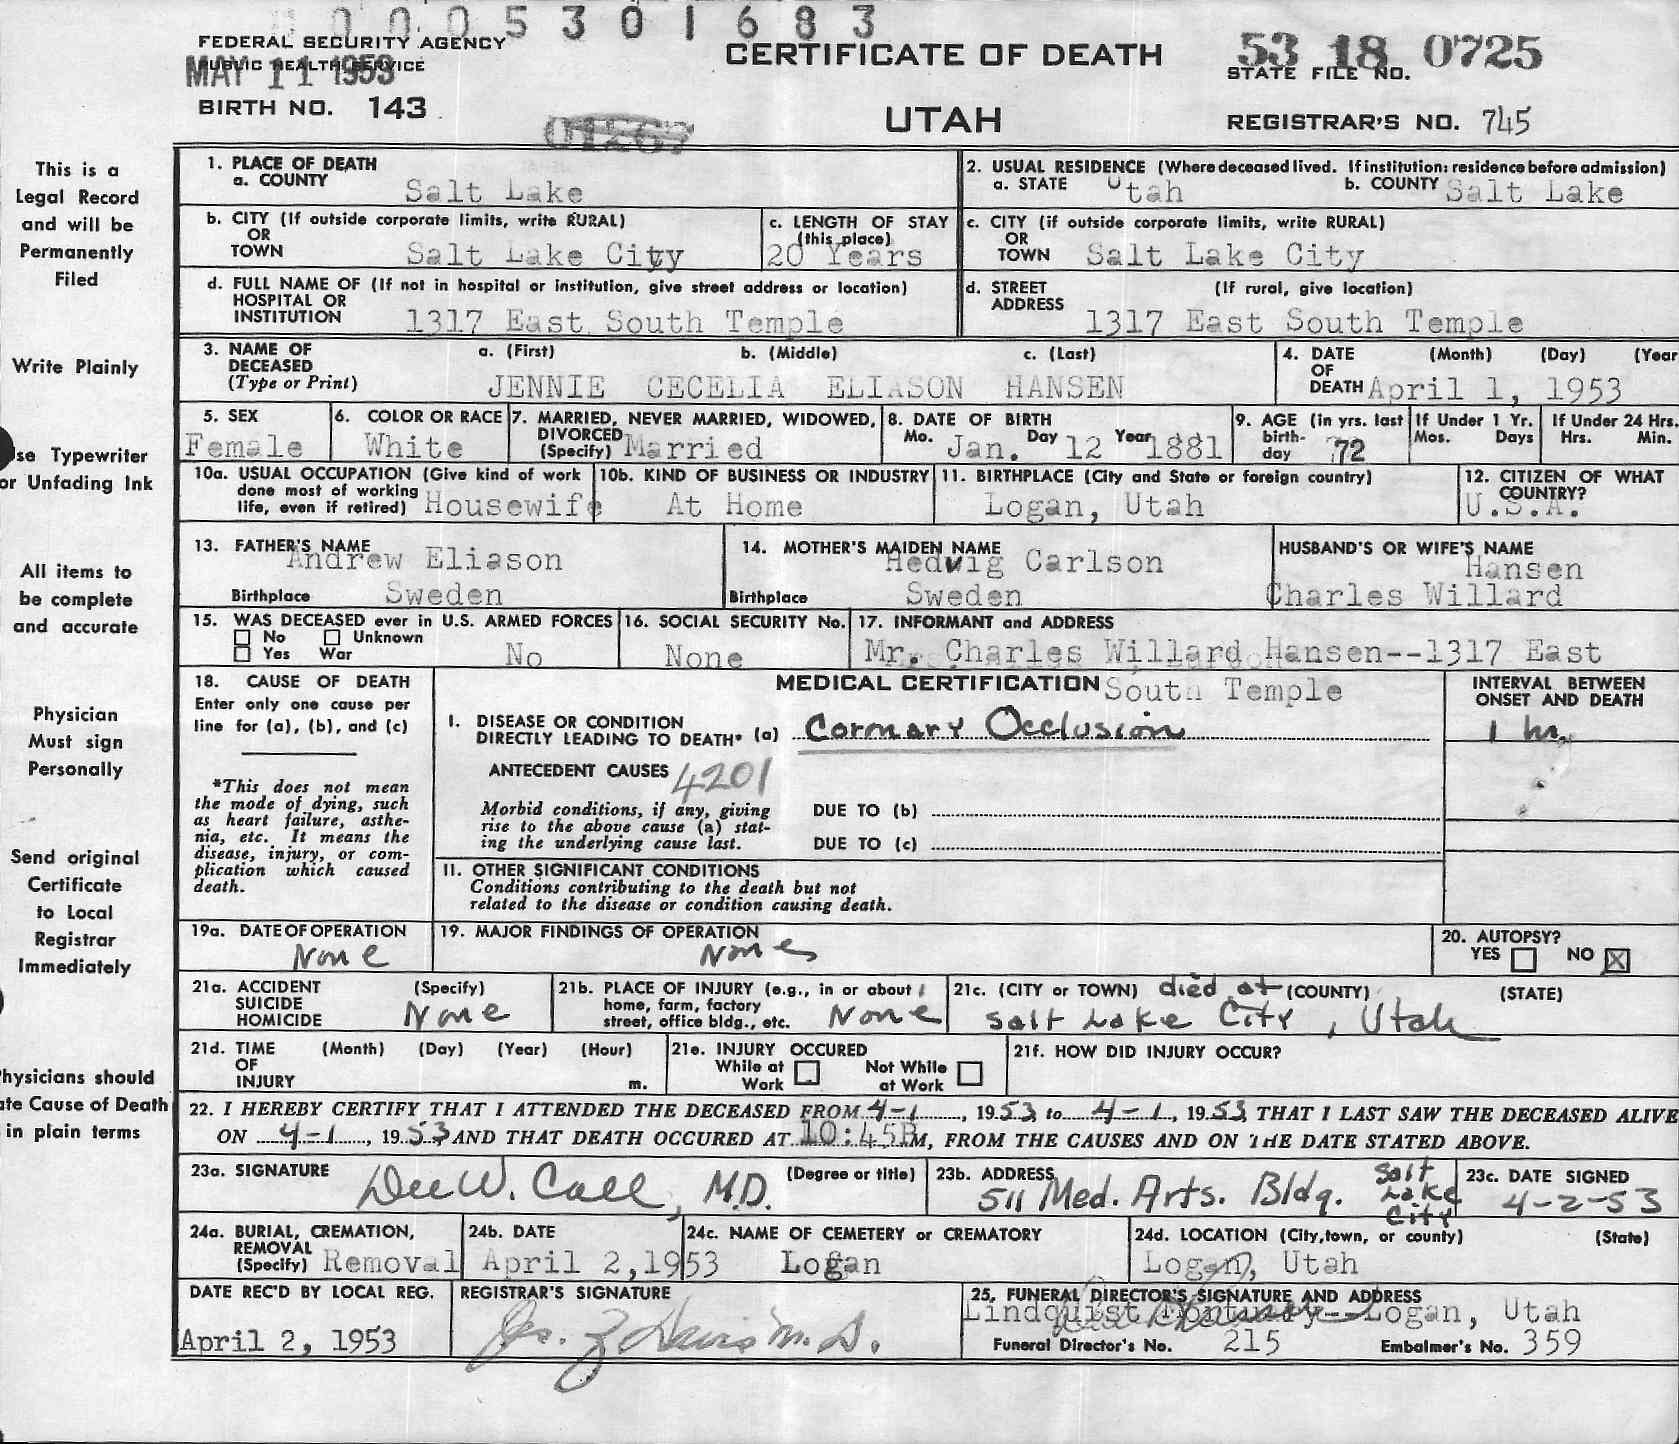 0005301683
FEDERAL SECURITY AGENCY
PUBLIC HEALTH SERVICE
MAY 11 1953
BIRTH NO. 143
CERTIFICATE OF DEATH
UTAH
53 18 0725
STATE FILE NO.
REGISTRAR'S NO. 745
01267
This is a
Legal Record
and will be
Permanently
Filed
Write Plainly
se Typewriter
or Unfading Ink
All items to
be complete
and accurate
Physician
Must sign
Personally
Send original
Certificate
to Local
Registrar
Immediately
hysicians should
ate Cause of Death
in plain terms
1. PLACE OF DEATH
a. COUNTY Salt Lake
2. USUAL RESIDENCE (Where deceased lived. If institution: residence before admission)
a. STATE Utah b. COUNTY Salt Lake
b. CITY (If outside corporate limits, write RURAL)
OR
TOWN Salt Lake City
c. LENGTH OF STAY
(this place)
20 Years
c. CITY (if outside corporate limits, write RURAL)
OR
TOWN Salt Lake City
d. FULL NAME OF (If not in hospital or institution, give street address or location)
HOSPITAL OR
INSTITUTION 1317 East South Temple
d. STREET (If rural, give location)
ADDRESS
1317 East South Temple
3. NAME OF a. (First) b. (Middle) c. (Last)
DECEASED
(Type or Print) JENNIE CECELIA ELIASON HANSEN
4. DATE (Month) (Day) (Year
OF
DEATH April 1, 1953
5. SEX
Female
6. COLOR OR RACE
White
7. MARRIED, NEVER MARRIED, WIDOWED,
DIVORCED
(Specify) Married
8. DATE OF BIRTH
Mo. Jan. Day 12 Year 1881
9. AGE (in yrs. last
birth-
day 72
If Under 1 Yr.
Mos. Days
If Under 24 Hrs.
Hrs. Min.
10a. USUAL OCCUPATION (Give kind of work
done most of working
life, even if retired) Housewife
10b. KIND OF BUSINESS OR INDUSTRY
At Home
11. BIRTHPLACE (City and State or foreign country)
Logan, Utah
12. CITIZEN OF WHAT
COUNTRY?
U.S.A.
13. FATHER'S NAME
Andrew Eliason
Birthplace Sweden
14. MOTHER'S MAIDEN NAME
Hedwig Carlson
Birthplace Sweden
HUSBAND'S OR WIFE'S NAME
Hansen
Charles Willard
15. WAS DECEASED ever in U.S. ARMED FORCES
No Unknown
Yes War No
16. SOCIAL SECURITY No.
None
17. INFORMANT and ADDRESS
Mr. Charles Willard Hansen--1317 East
South Temple
18. CAUSE OF DEATH
Enter only one cause per
line for (a), (b), and (c)
*This does not mean
the mode of dying, such
as heart failure, asthe-
nia, etc. It means the
disease, injury, or com-
plication which caused
death.
MEDICAL CERTIFICATION
INTERVAL BETWEEN
ONSET AND DEATH
I. DISEASE OR CONDITION
DIRECTLY LEADING TO DEATH* (a) Coronary Occlusion 1 hr.
ANTECEDENT CAUSES 4201
Morbid conditions, if any, giving
rise to the above cause (a) stat-
ing the underlying cause last.
DUE TO (b)
DUE TO (c)
11. OTHER SIGNIFICANT CONDITIONS
Conditions contributing to the death but not
related to the disease or condition causing death.
19a. DATE OF OPERATION
None
19. MAJOR FINDINGS OF OPERATION
None
20. AUTOPSY?
YES NO
21a. ACCIDENT (Specify)
SUICIDE
HOMICIDE None
21b. PLACE OF INJURY (e.g., in or about
home, farm, factory
street, office bldg., etc. None
21c. (CITY or TOWN) died at (COUNTY) (STATE)
Salt Lake City, Utah
21d. TIME (Month) (Day) (Year) (Hour)
OF
INJURY m.
21e. INJURY OCCURED
While at Work Not While at Work
21f. HOW DID INJURY OCCUR?
22. I HEREBY CERTIFY THAT I ATTENDED THE DECEASED FROM 4-1, 1953 to 4-1, 1953, THAT I LAST SAW THE DECEASED ALIVE
ON 4-1, 1953 AND THAT DEATH OCCURED AT 10:45P M, FROM THE CAUSES AND ON THE DATE STATED ABOVE.
23a. SIGNATURE (Degree or title)
Dee W. Call, M.D.
23b. ADDRESS
511 Med. Arts. Bldg. Salt Lake City
23c. DATE SIGNED
4-2-53
24a. BURIAL, CREMATION,
REMOVAL
(Specify) Removal
24b. DATE
April 2, 1953
24c. NAME OF CEMETERY or CREMATORY
Logan
24d. LOCATION (City, town, or county) (State)
Logan, Utah
DATE REC'D BY LOCAL REG.
April 2, 1953
REGISTRAR'S SIGNATURE
25, FUNERAL DIRECTOR'S SIGNATURE AND ADDRESS
Lindquist Mortuary--Logan, Utah
Funeral Director's No. 215 Embalmer's No. 359